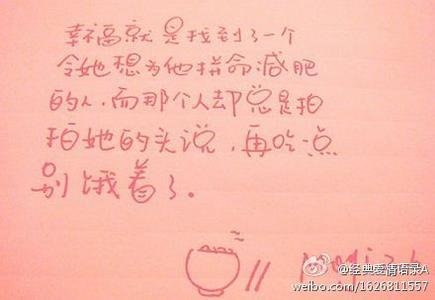 幸福就是找到了一个
令她想为他拼命减肥
的人,而那个人却总是拍
拍她的头说,再吃点
别饿着了。
@经典爱情语录A
weibo.com/1626811557